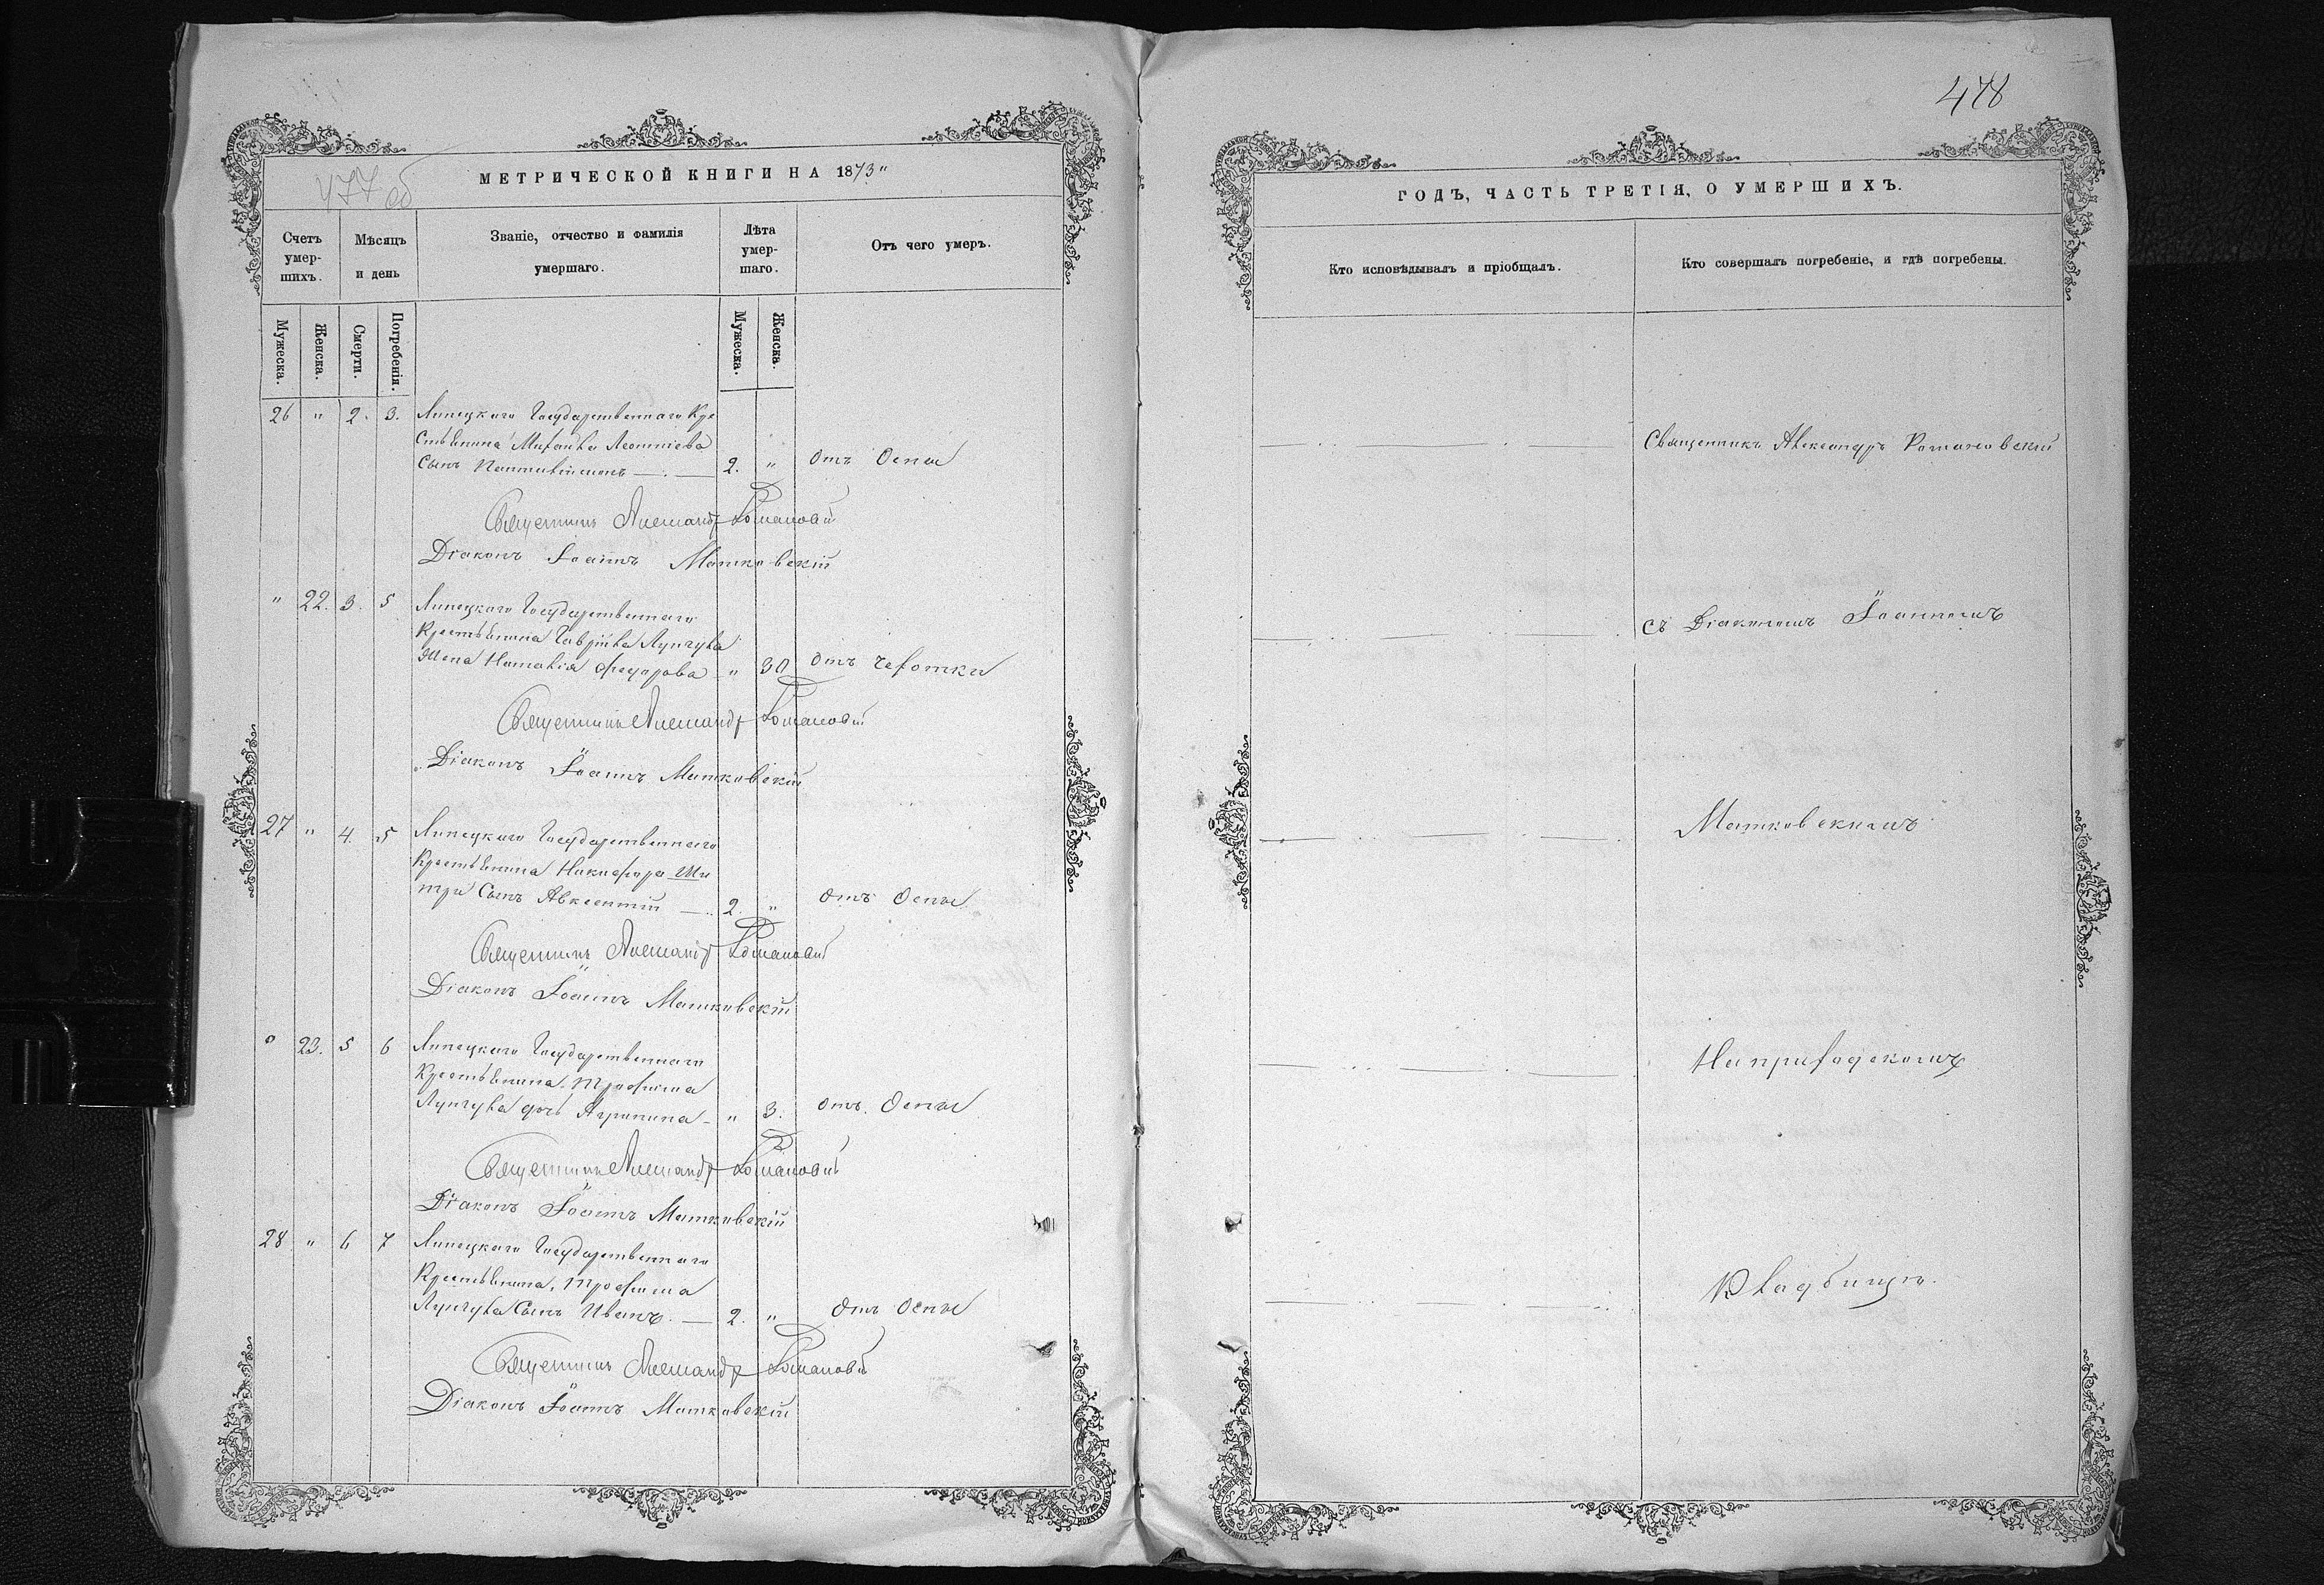 477 об
МЕТРИЧЕСКОЙ КНИГИ НА 1873"
Счетъ умер- шихъ.
Мѣсяцъ и день
Званіе, отчество и фамилія умершаго.
Лѣта умер- шаго.
Отъ чего умеръ.
Мужеска.
Женска.
Смерти.
Погребенія.
Мужеска.
Женска.
26 " 2. 3. Липецкаго Государственнаго Кре
стьянина Михаила Леонтіева
Сынъ 2. " отъ Оспы
Священникъ Александръ Романовскій
Діаконъ Іоаннъ Матковскій
" 22. 3. 5 Липецкаго Государственнаго
Крестьянина Гавріила Лунгула
Жена Наталія Федорова " 30 отъ чахотки
Священникъ Александръ Романовскій
Діаконъ Іоаннъ Матковскій
27 " 4. 5 Липецкаго Государственнаго
Крестьянина Никифора
Сынъ Авксентій 2 " отъ Оспы
Священникъ Александръ Романовскій
Діаконъ Іоаннъ Матковскій
" 23. 5 6 Липецкаго Государственнаго
Крестьянина Трофима
Лунгула дочь Агрипина " 3. отъ Оспы
Священникъ Александръ Романовскій
Діаконъ Іоаннъ Матковскій
28 " 6 7 Липецкаго Государственнаго
Крестьянина Трофима
Лунгула Сынъ Иванъ. 2. " отъ Оспы
Священникъ Александръ Романовскій
Діаконъ Іоаннъ Матковскій
478
ГОДЪ, ЧАСТЬ ТРЕТІЯ, О УМЕРШИХЪ.
Кто исповѣдывалъ и пріобщалъ.
Кто совершалъ погребеніе, и гдѣ погребены.
Священникъ Александръ Романовскій
съ Діакономъ Іоанномъ
Матковскимъ
На приходскомъ
Кладбищѣ.